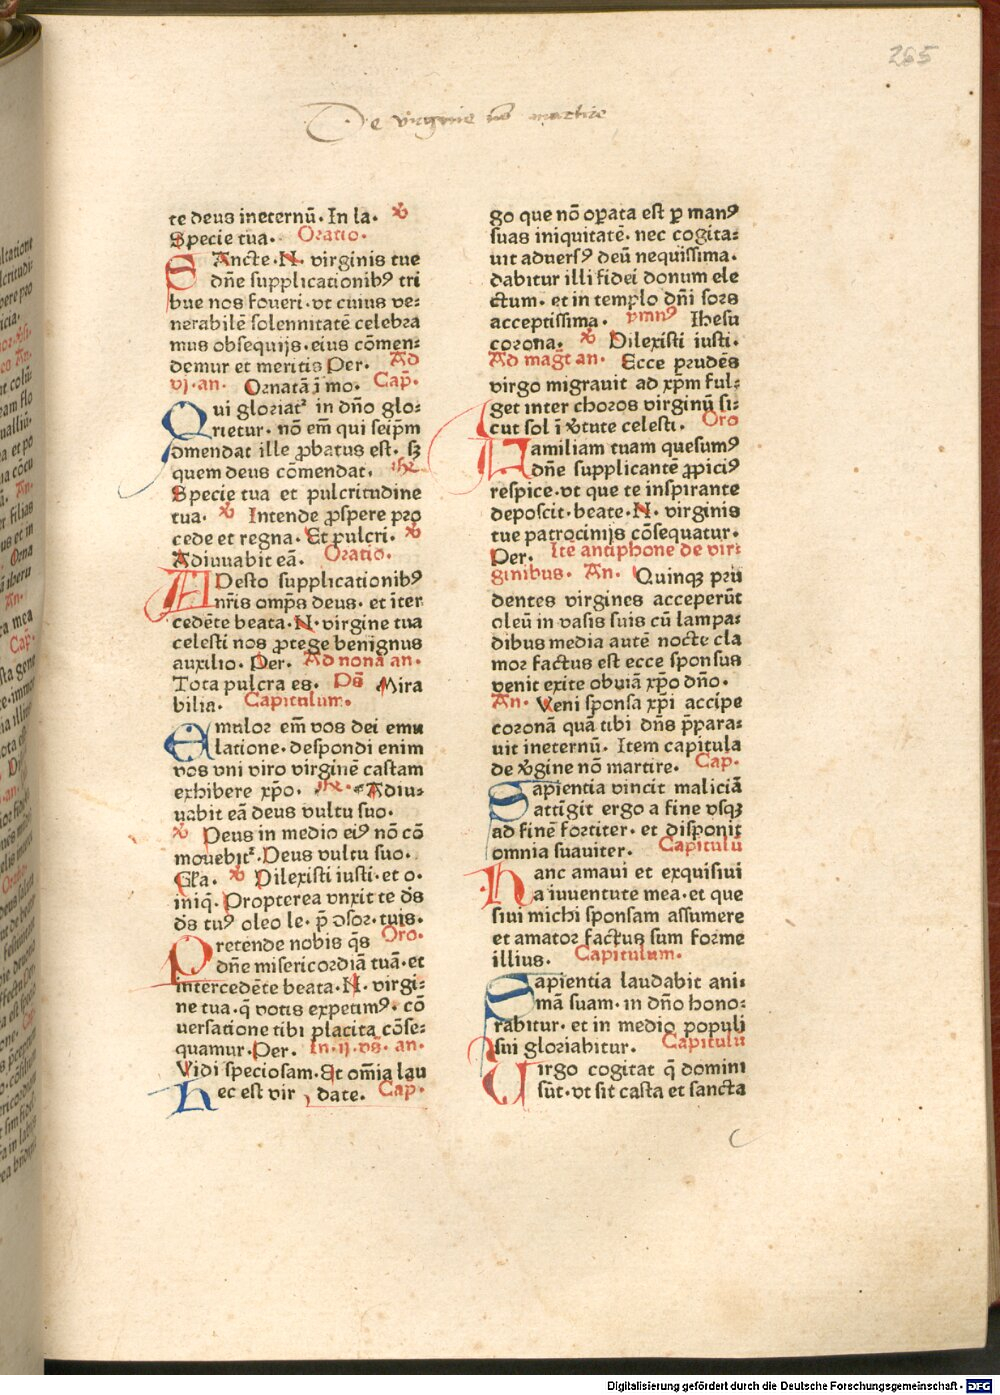 265
De virgine non martire
te deus ineternū. In la. ꝟ
Specie tua. Oratio.
SAncte .N. virginis tue
dn̄e supplicationibꝰ tri
bue nos foueri. vt cuius ve⸗
nerabilē solennitatē celebra
mus obsequijs. eius cōmen⸗
demur et meritis Per. Ad
vj. an. Ornatā ī mo. Cap̄.
Qui gloriat᷑ in dn̄o glo⸗
rietur. nō em̄ qui seip̄m
ↄmendat ille ꝓbatus est. sꝫ
quem deus cōmendat.
Specie tua et pulcritudine
tua. ꝟ Intende ꝓspere pro
cede et regna. Et pulcri. ꝟ
Adiuuabit eā. Oratio.
ADesto supplicationibꝰ
nr̄is omp̄s deus. et īter
cedēte beata .N. virgine tua
celesti nos ꝓtege benignus
auxilio. Per. Ad nonā an.
Tota pulcra es. Ps̄ Mira
bilia. Capitulum.
Emulor em̄ vos dei emu
latione. despondi enim
vos vni viro virginē castam
exhibere xp̄o. Adiu⸗
uabit eā deus vultu suo.
ꝟ Deus in medio eiꝰ nō cō
mouebit᷑. Deus vultu suo.
Gl̄a. ꝟ Dilexisti iusti. et o.
iniq̄. Propterea vnxit te ds̄
ds̄ tuꝰ oleo le. p̄ ↄsor. tuis.
Pretende nobis q̄s Oro.
dn̄e misericordiā tuā. et
intercedēte beata .N. virgi⸗
ne tua. q̄ votis expetimꝰ. cō
uersatione tibi placita cōse⸗
quamur. Per. In .ij. vs̄. an.
Vidi speciosam. Et om̄ia lau
Hec est vir date. Cap̄.
go que nō oꝑata est ꝑ manꝰ
suas iniquitatē. nec cogita⸗
uit aduersꝰ deū nequissima.
dabitur illi fidei donum ele
ctum. et in templo dn̄i sors
acceptissima. ymnꝰ Ihesu
corona. ꝟ Dilexisti iusti.
Ad magt̄ an. Ecce prudēs
virgo migrauit ad xp̄m ful⸗
get inter choros virginū si⸗
cut sol ī ꝟtute celesti. Oro
Familiam tuam quesumꝰ
dn̄e supplicantē ꝓpiciꝰ
respice. vt que te inspirante
deposcit. beate .N. virginis
tue patrocinijs cōsequatur.
Per. Ite antiphone de vir⸗
ginibus. An. Quinqꝫ pru
dentes virgines acceperūt
oleū in vasis suis cū lampa⸗
dibus media autē nocte cla
mor factus est ecce sponsus
venit exite obuiā xp̄o dn̄o.
An. Veni sponsa xp̄i accipe
coronā quā tibi dn̄s p̄para⸗
uit ineternū. Item capitula
de ꝟgine nō martire. Cap̄.
Sapientia vincit maliciā
attīgit ergo a fine vsqꝫ
ad finē fortiter. et disponit
omnia suauiter. Capitulū
Hanc amaui et exquisiui
a iuuentute mea. et que
siui michi sponsam assumere
et amator factus sum forme
illius. Capitulum.
Sapientia laudabit ani⸗
mā suam. in dn̄o hono⸗
rabitur. et in medio populi
sui gloriabitur. Capitulū
Virgo cogitat q̄ domini
sūt. vt sit casta et sancta
Digitalisierung gefördert durch die Deutsche Forschungsgemeinschaft - DFG